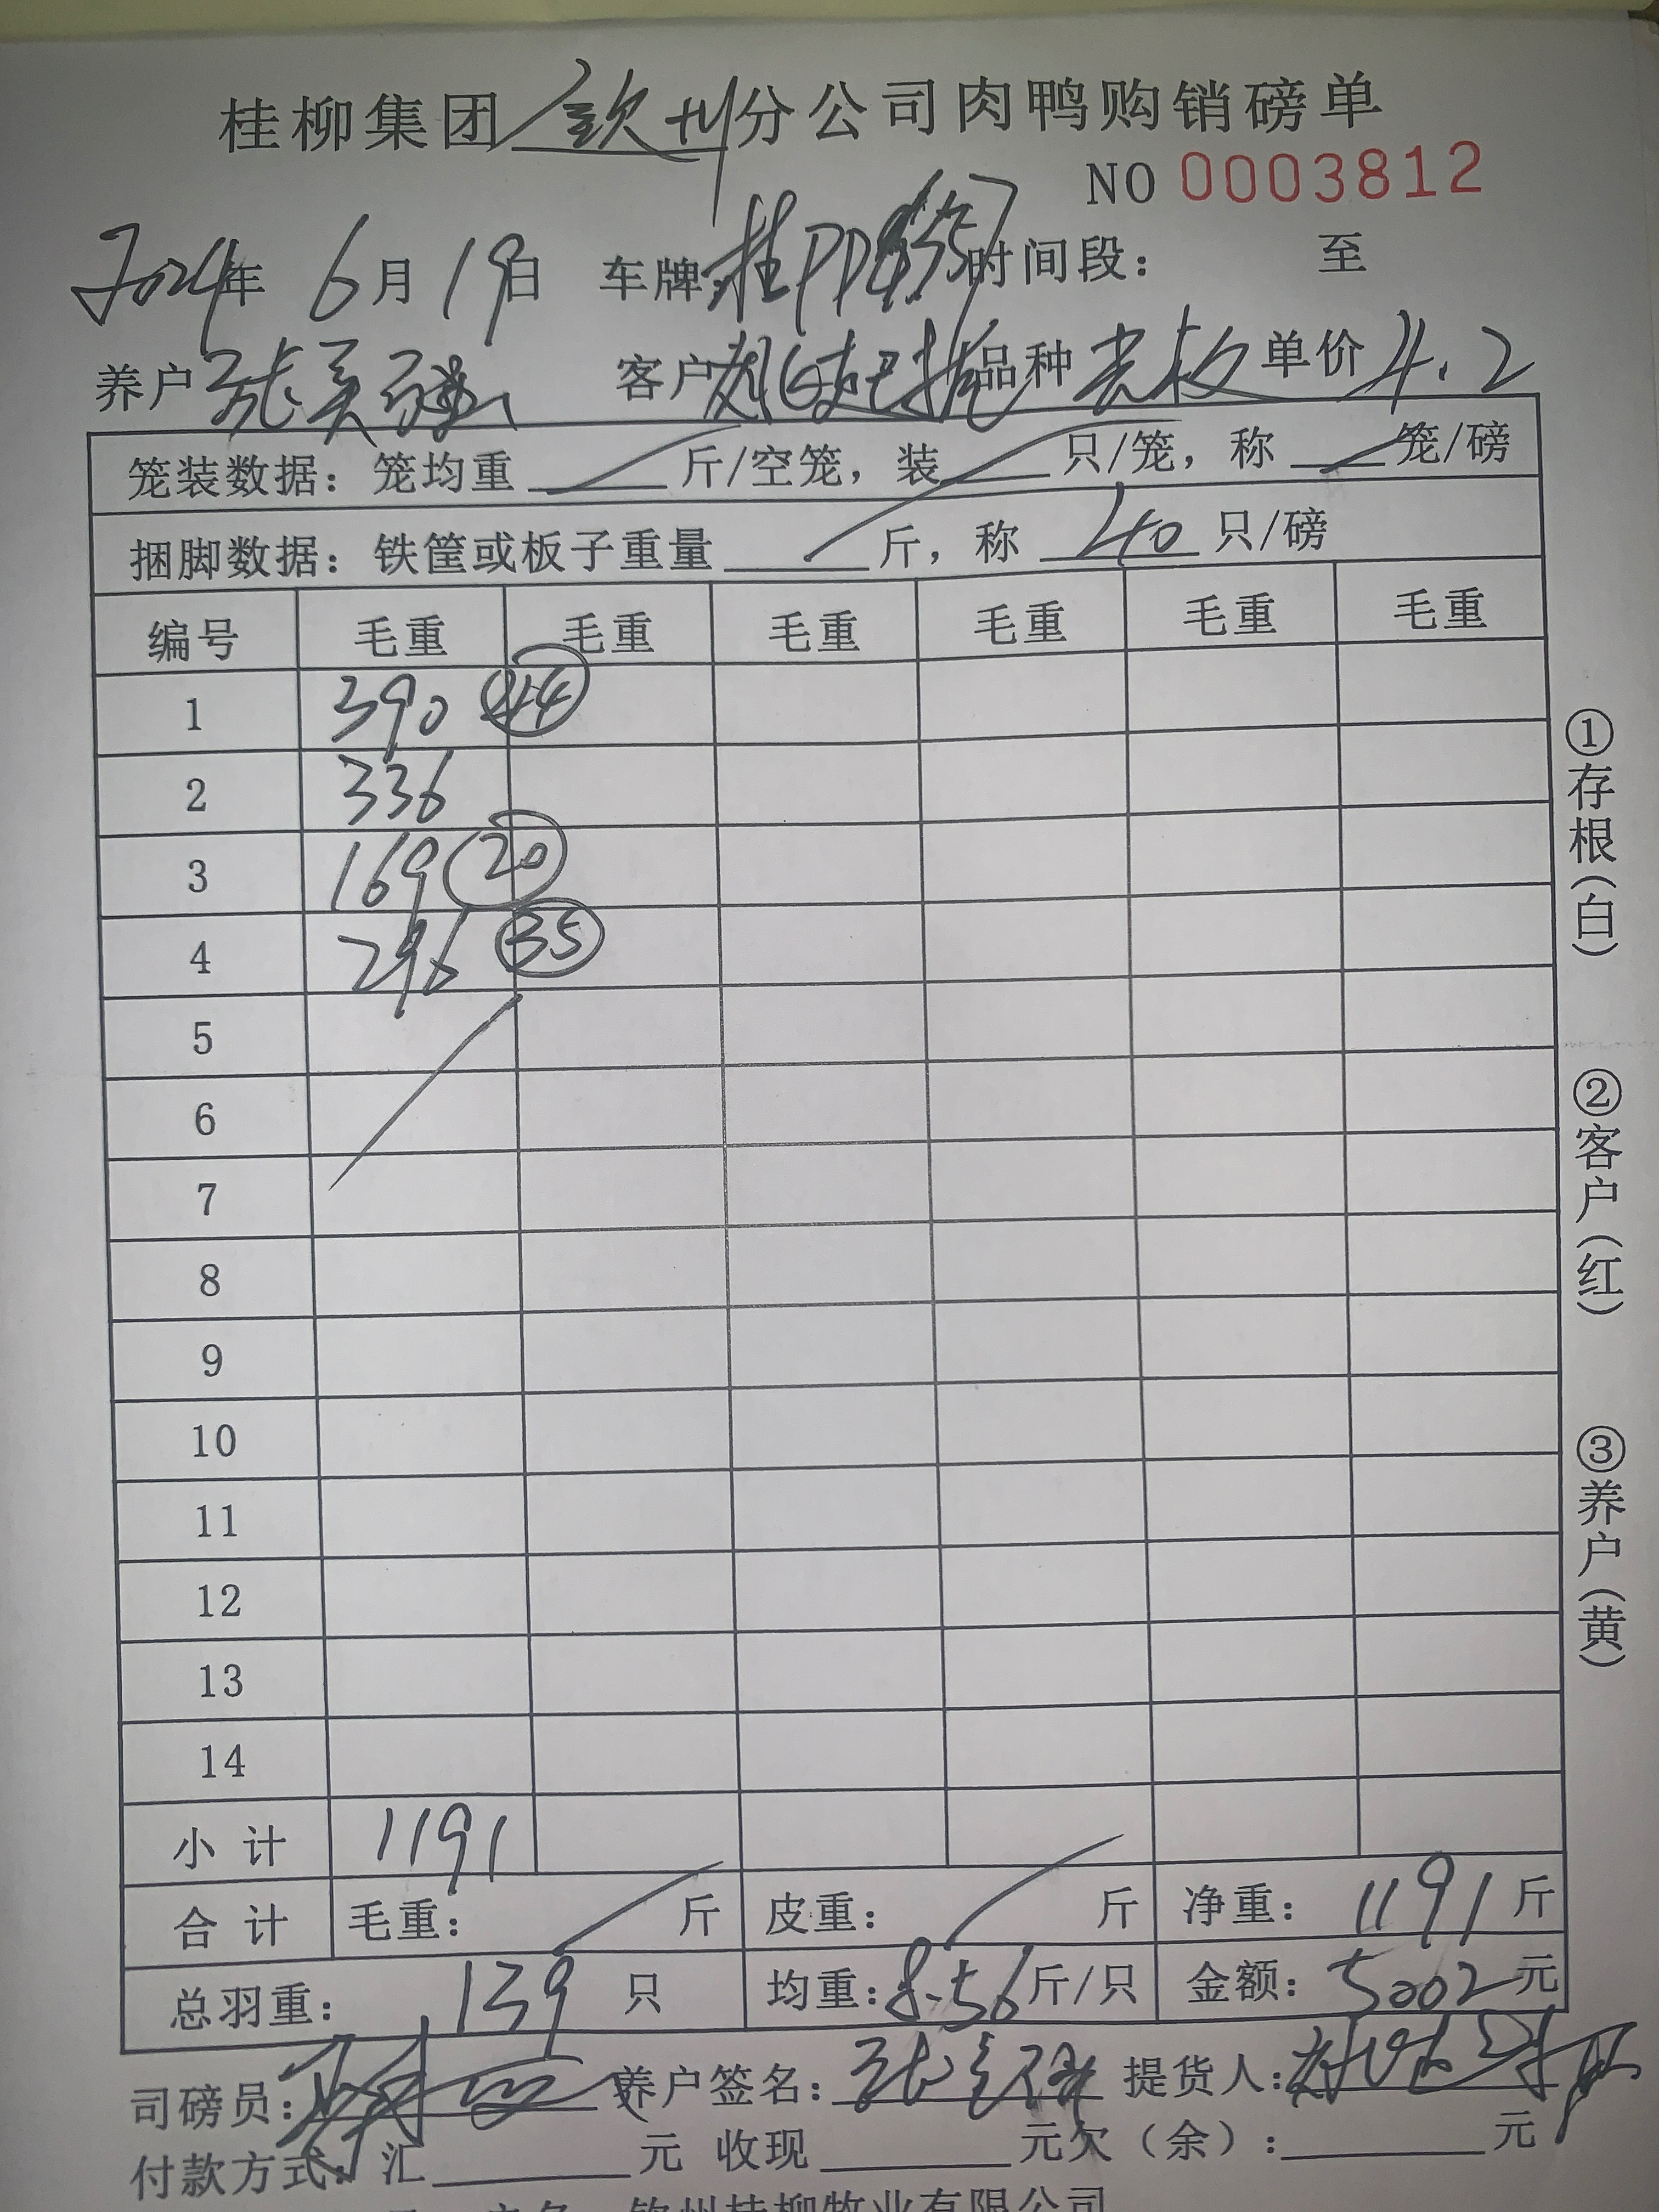 桂柳集团 钦州 分公司肉鸭购销磅单
NO 0003812
2024年 6月 19日 车牌:桂PD 时间段: 至
养户 张美 客户 品种 单价 4.2
笼装数据: 笼均重 斤/空笼, 装 只/笼, 称 笼/磅
捆脚数据: 铁筐或板子重量 斤, 称 40 只/磅
编号 毛重 毛重 毛重 毛重 毛重 毛重
1 390 44
2 336
3 169 20
4 296 35
5
6
7
8
9
10
11
12
13
14
小计 1191
合计 毛重: 斤 皮重: 斤 净重: 1191 斤
总羽重: 139 只 均重: 8.56 斤/只 金额: 5002 元
司磅员: 养户签名: 张美 提货人:
付款方式: 汇 元 收现 元欠(余): 元
钦州桂柳牧业有限公司
①存根(白)
②客户(红)
③养户(黄)